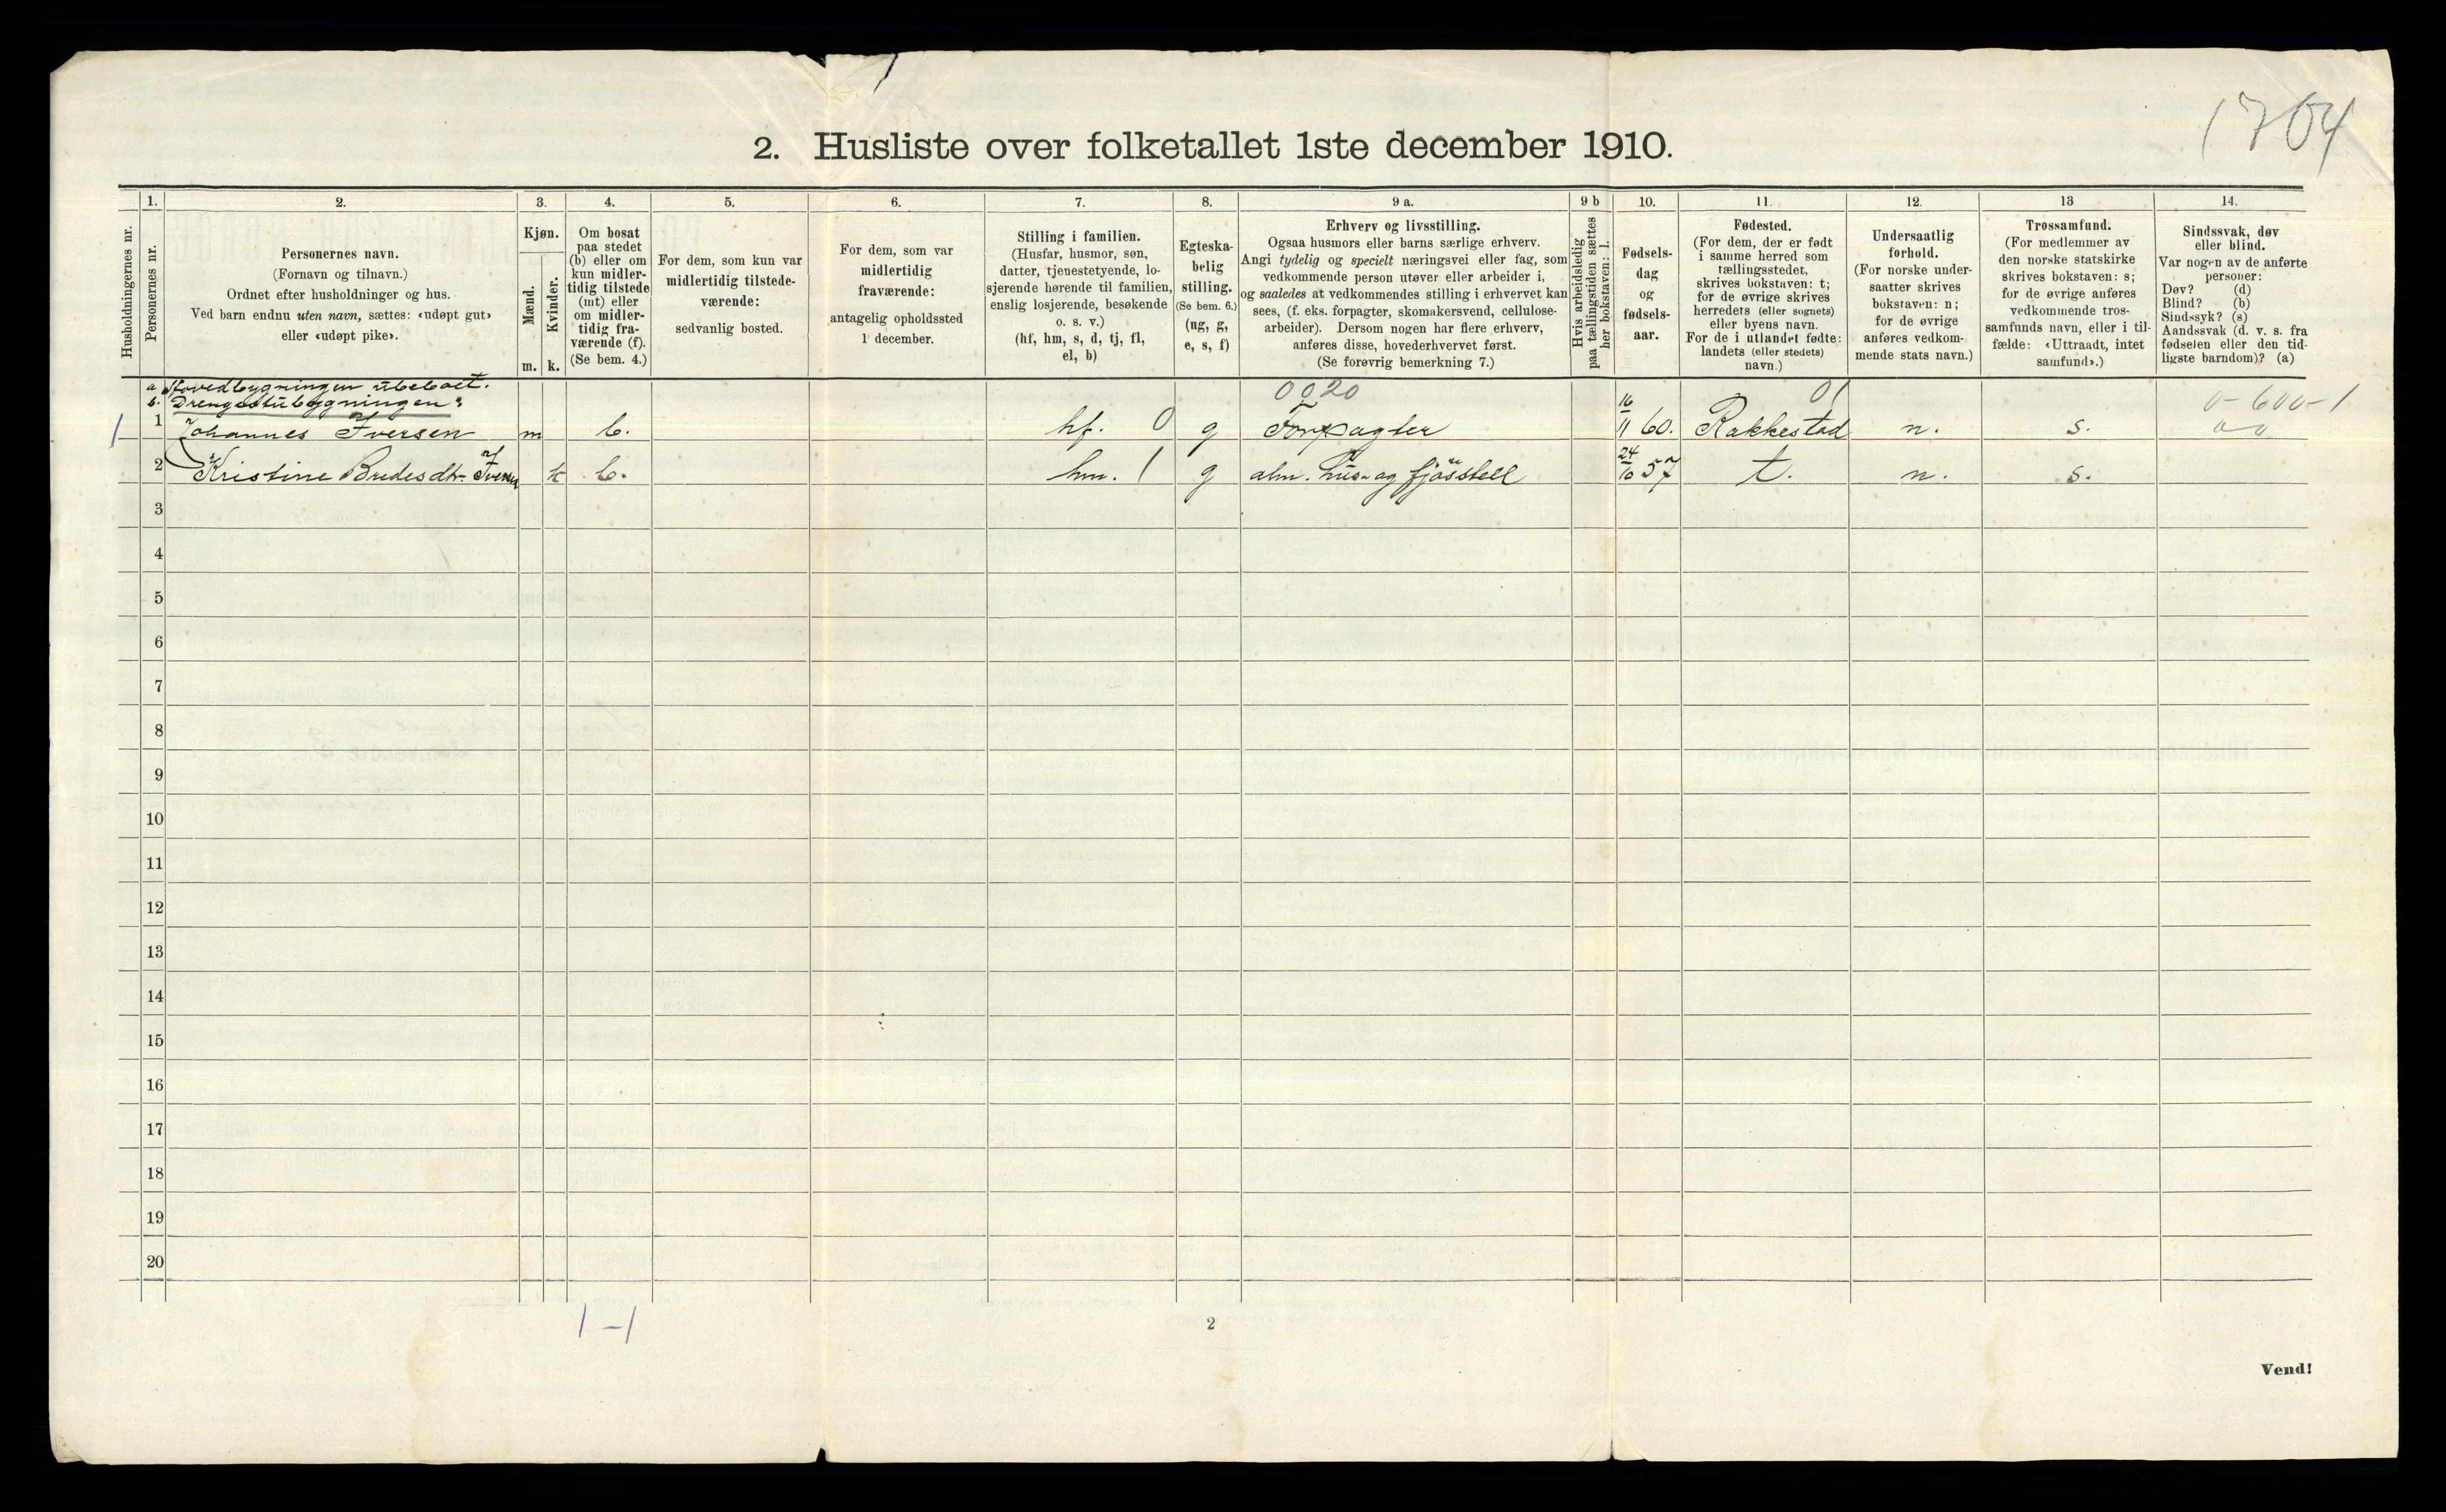 1704
2. Husliste over folketallet 1ste december 1910.
Husholdningernes nr.
1.
Personernes nr.
2.
Personernes navn.
(Fornavn og tilnavn.)
Ordnet efter husholdninger og hus.
Ved barn endnu uten navn, sættes: «udøpt gut»
eller «udøpt pike».
3.
Kjøn.
Mænd.
Kvinder.
m.
k.
4.
Om bosat
paa stedet
(b) eller om
kun midler-
tidig tilstede
(mt) eller
om midler-
tidig fra-
værende (f).
(Se bem. 4.)
5.
For dem, som kun var
midlertidig tilstede-
værende:
sedvanlig bosted.
6.
For dem, som var
midlertidig
fraværende:
antagelig opholdssted
1 december.
7.
Stilling i familien.
(Husfar, husmor, søn,
datter, tjenestetyende, lo-
sjerende hørende til familien,
enslig losjerende, besøkende
o. s. v.)
(hf, hm, s, d, tj, fl,
el, b)
8.
Egteska-
belig
stilling.
(Se bem. 6.)
(ug, g,
e, s, f)
9 a.
Erhverv og livsstilling.
Ogsaa husmors eller barns særlige erhverv.
Angi tydelig og specielt næringsvei eller fag, som
vedkommende person utøver eller arbeider i,
og saaledes at vedkommendes stilling i erhvervet kan
sees, (f. eks. forpagter, skomakersvend, cellulose-
arbeider). Dersom nogen har flere erhverv,
anføres disse, hovederhvervet først.
(Se forøvrig bemerkning 7.)
9 b
Hvis arbeidsledig
paa tællingstiden sættes
her bokstaven: l.
10.
Fødsels-
dag
og
fødsels-
aar.
11.
Fødested.
(For dem, der er født
i samme herred som
tællingsstedet,
skrives bokstaven: t;
for de øvrige skrives
herredets (eller sognets)
eller byens navn.
For de i utlandet fødte:
landets (eller stedets)
navn.)
12.
Undersaatlig
forhold.
(For norske under-
saatter skrives
bokstaven: n;
for de øvrige
anføres vedkom-
mende stats navn.)
13
Trossamfund.
(For medlemmer av
den norske statskirke
skrives bokstaven: s;
for de øvrige anføres
vedkommende tros-
samfunds navn, eller i til-
fælde: «Uttraadt, intet
samfund».)
14.
Sindssvak, døv
eller blind.
Var nogen av de anførte
personer:
Døv? (d)
Blind? (b)
Sindssyk? (s)
Aandssvak (d. v. s. fra
fødselen eller den tid-
ligste barndom)? (a)
a Hovedbygningen ubeboet.
b. Drengestubygningen: 0020 01 0-600-1
1 1 Johannes Iversen m b. hf. 0 g Forpagter 16/11 60. Rakkestad n. s.
2 Kristine Budesdtr. Iversen k b. hm. 1 g alm. hus- og fjøsstell 24/10 57 t. n. s.
3
4
5
6
7
8
9
10
11
12
13
14
15
16
17
18
19
20
1-1
2
Vend!